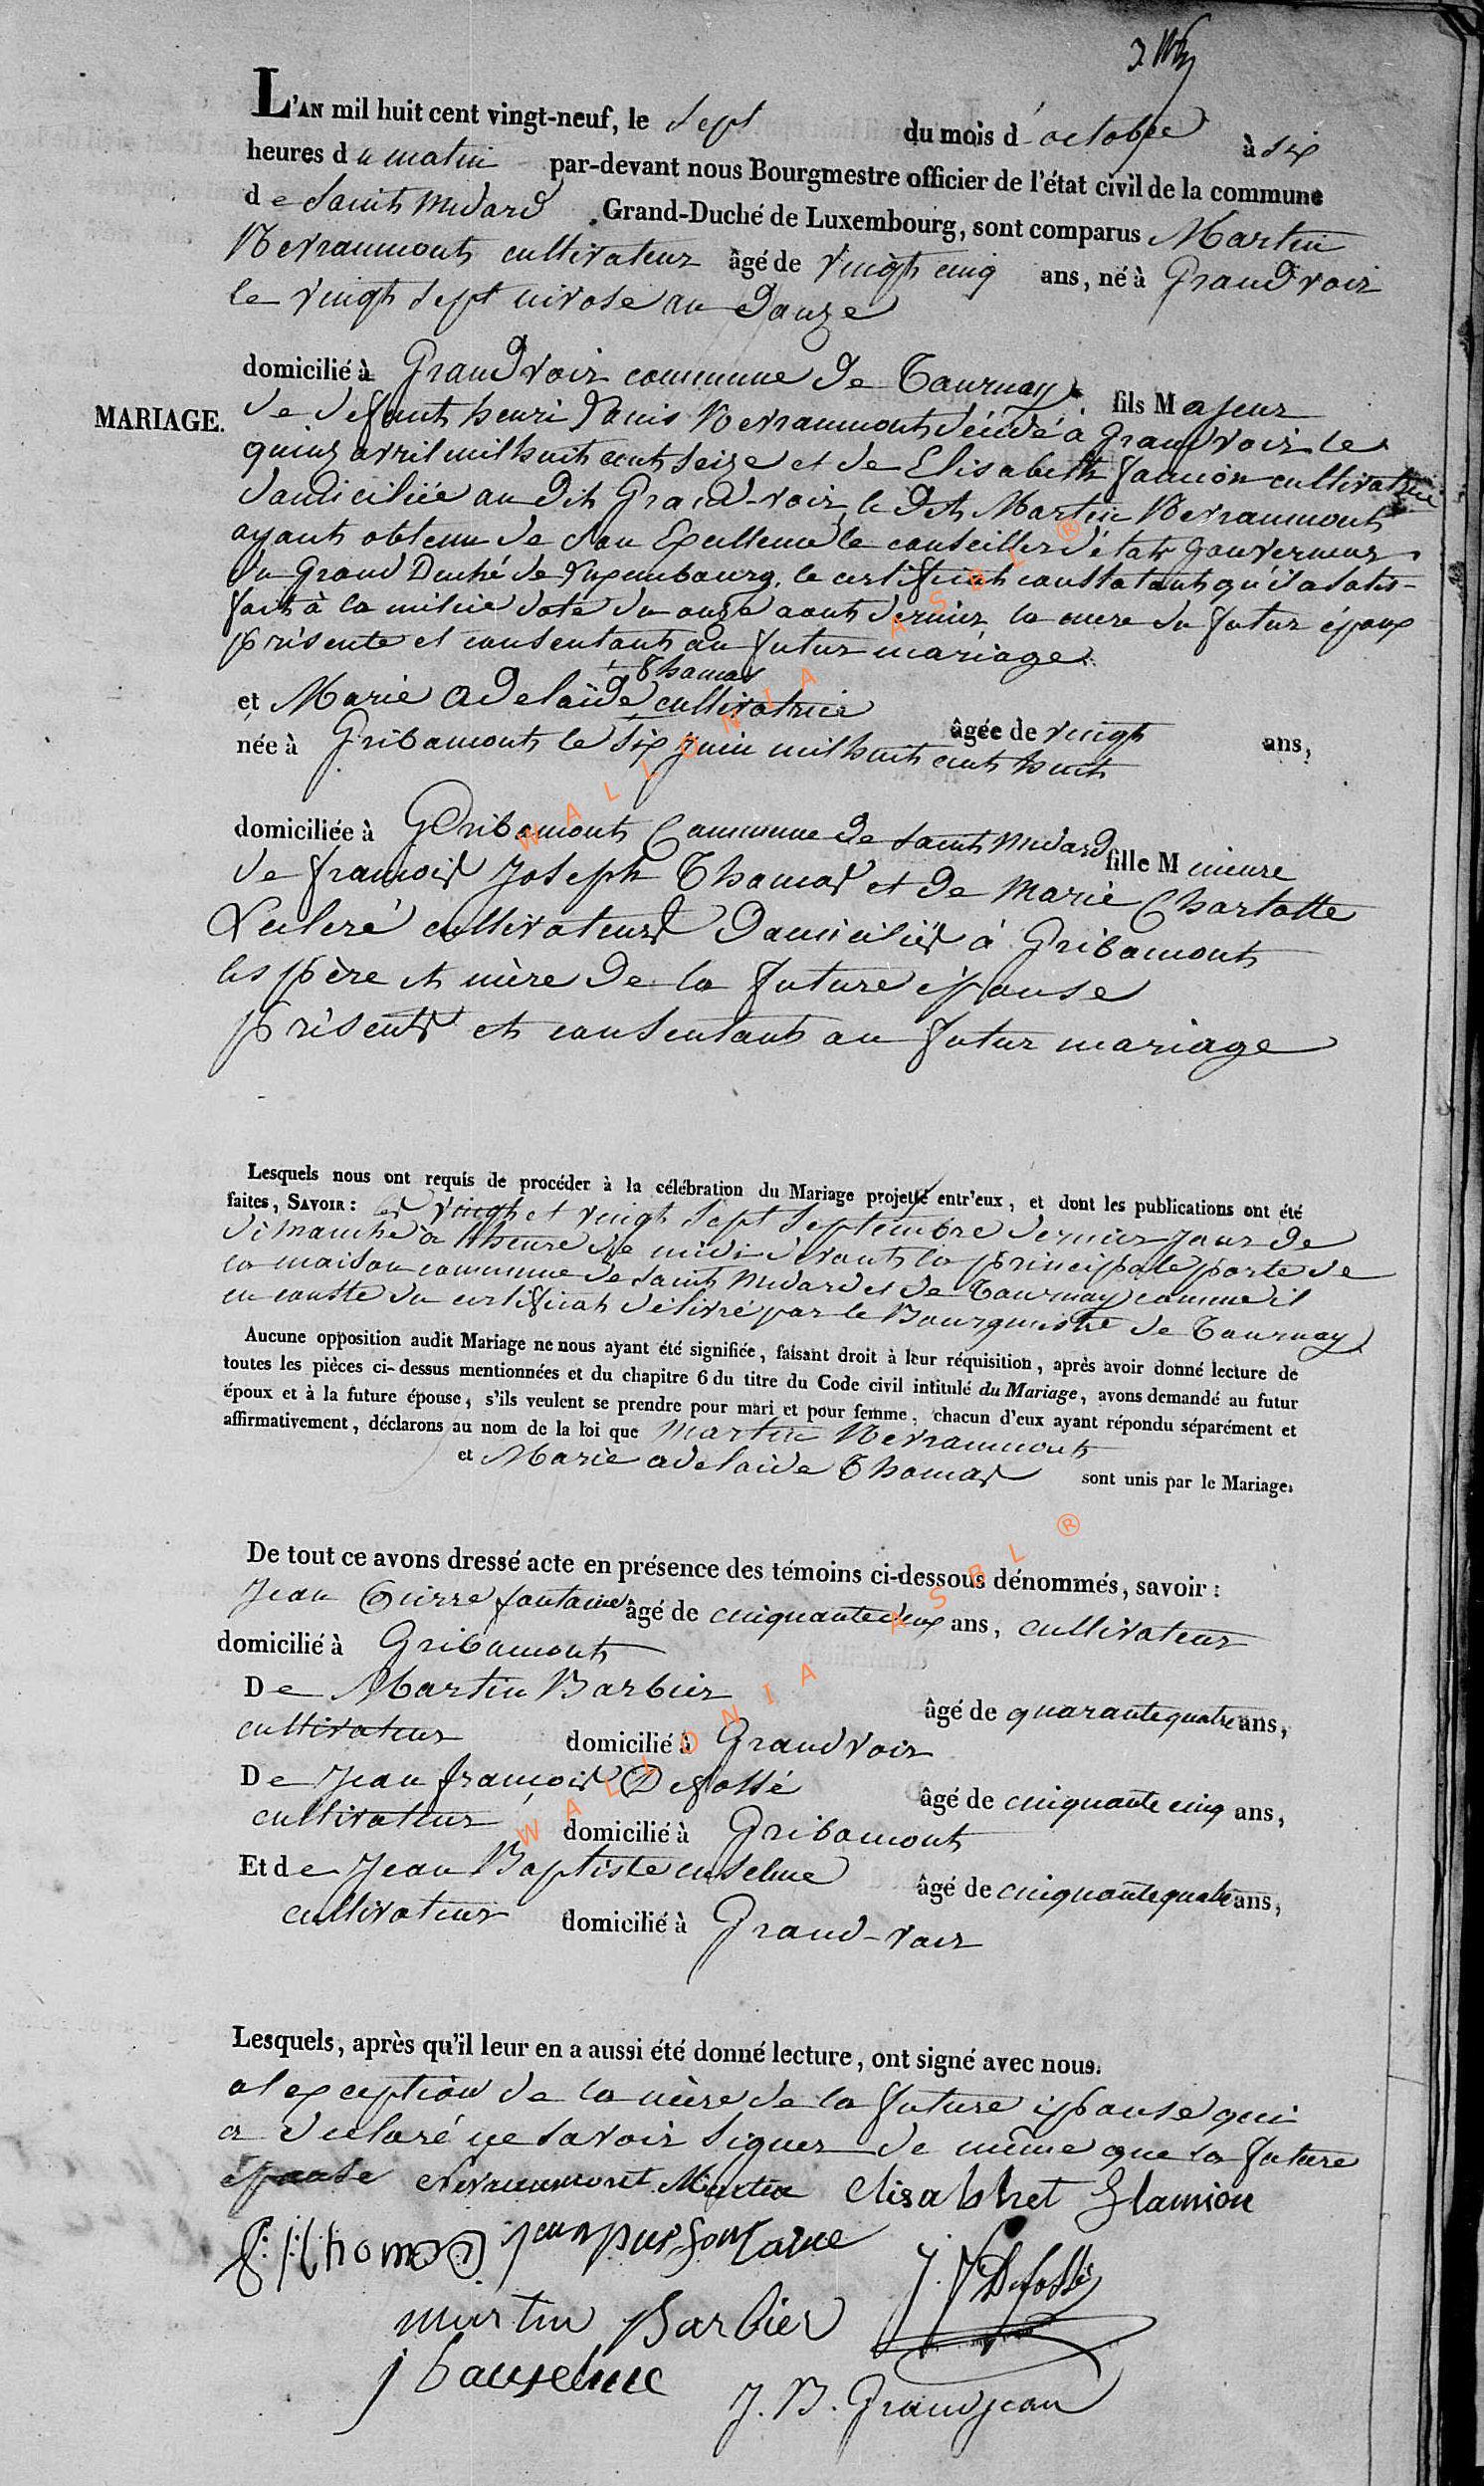 L'AN mil huit cent vingt-neuf, le sept du mois d'octobre à six
heures du matin par-devant nous Bourgmestre officier de l'état civil de la commune
de Saint Medard Grand-Duché de Luxembourg, sont comparus Martin
Nevraumont cultivateur âgé de vingt cinq ans, né à Grandvoir
le vingt sept nivose an douze
domicilié à Grandvoir commune de Tournay fils Majeur
MARIAGE.
de defunt henri Louis Nevraumont décédé à grandvoir le
quinz avril mil huit cent seize et de Elisabeth Lamion cultivatrice
domiciliée au dit Grand-voir, le dit Martin Nevraumont
ayant obtenu de son Excellence le conseiller d'état gouverneur
du Grand Duché de Luxembourg, le certificat constatant qu'il a satis-
fait à la milice daté du onze aout dernier la mere du futur époux
présente et consentant au futur mariage.
Thomas
et Marie Adelaïde cultivatrice âgée de vingt ans,
née à Gribamont le six juin mil huit cent huit
domiciliée à Gribomont Commune de Saint Medard fille Mineure
de françois Joseph Thomas et de Marie Charlotte
cultivateurs domiciliés à Gribamont
les père et mère de la future épouse
présents et consentant au futur mariage
Lesquels nous ont requis de procéder à la célébration du Mariage projetté entr'eux, et dont les publications ont été
faites, SAVOIR: les vingt et vingt sept septembre dernier jour de
dimanche à l'heure de midi devant la principale porte de
la maison commune de Saint Medard et de Tournay comme il
en conste du certificat délivré par le Bourgmestre de Tournay
Aucune opposition audit Mariage ne nous ayant été signifiée, faisant droit à leur réquisition, après avoir donné lecture de
toutes les pièces ci-dessus mentionnées et du chapitre 6 du titre du Code civil intitulé du Mariage, avons demandé au futur
époux et à la future épouse, s'ils veulent se prendre pour mari et pour femme, chacun d'eux ayant répondu séparément et
affirmativement, déclarons au nom de la loi que Martin Nevraumont
et Marie adelaide Thomas sont unis par le Mariage.
De tout ce avons dressé acte en présence des témoins ci-dessous dénommés, savoir:
Jean Pierre fontaine âgé de cinquante deux ans, cultivateur
domicilié à Gribamont
De Martin Barbier âgé de quarante quatre ans,
cultivateur domicilié à Grandvoir
De Jean françois Defossé âgé de cinquante cinq ans,
cultivateur domicilié à Gribomont
Et de Jean Baptiste anselme âgé de cinquante quatre ans,
cultivateur domicilié à Grand-voir
Lesquels, après qu'il leur en a aussi été donné lecture, ont signé avec nous.
a l'exception de la mère de la future épouse qui
a declaré ne savoir signer de même que la future
épouse Nevraumont Martin Elisabhet Lamion
Thomas jean pier fontaine
J. F. Defossé
martin Barbier
j b anselme
J. B. Grandjean
WALLONIA ASBL ®
WALLONIA ASBL ®